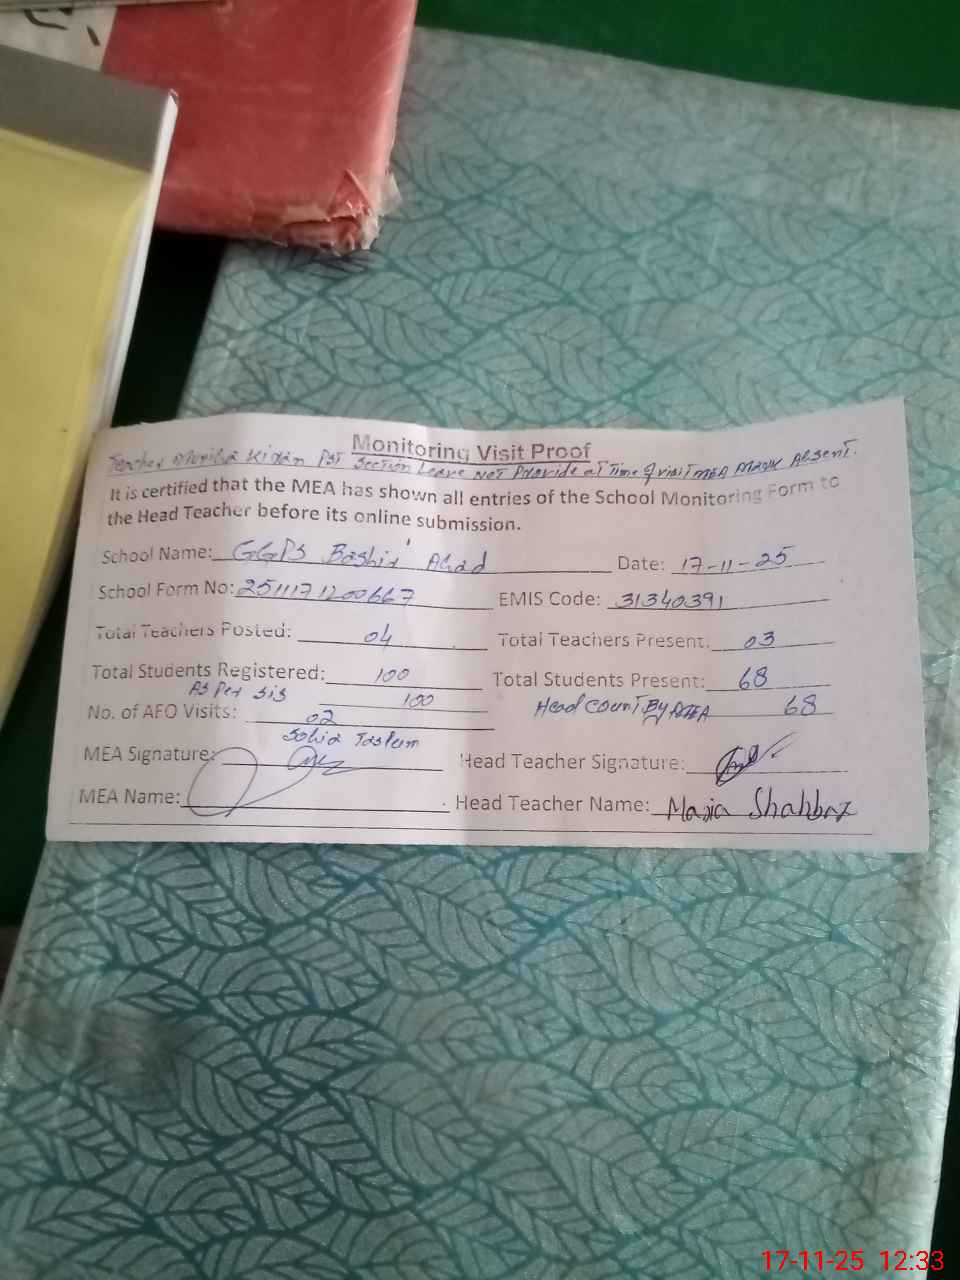 Monitoring Visit Proof
Teacher Kiran PST Section Leave Not Provide at Time of visit MEA Mark Absent.
It is certified that the MEA has shown all entries of the School Monitoring Form to
the Head Teacher before its online submission.
School Name: GGPS Bashir Abad Date: 17-11-25
School Form No: 2511171200667 EMIS Code: 31340391
Total Teachers Posted: 04 Total Teachers Present: 03
Total Students Registered: 100 Total Students Present: 68
As Per SIS 100 Head Count By MEA 68
No. of AFO Visits: 02
Sobia Taslem
MEA Signature: Head Teacher Signature:
MEA Name: Head Teacher Name: Maria Shahbaz
17-11-25 12:33